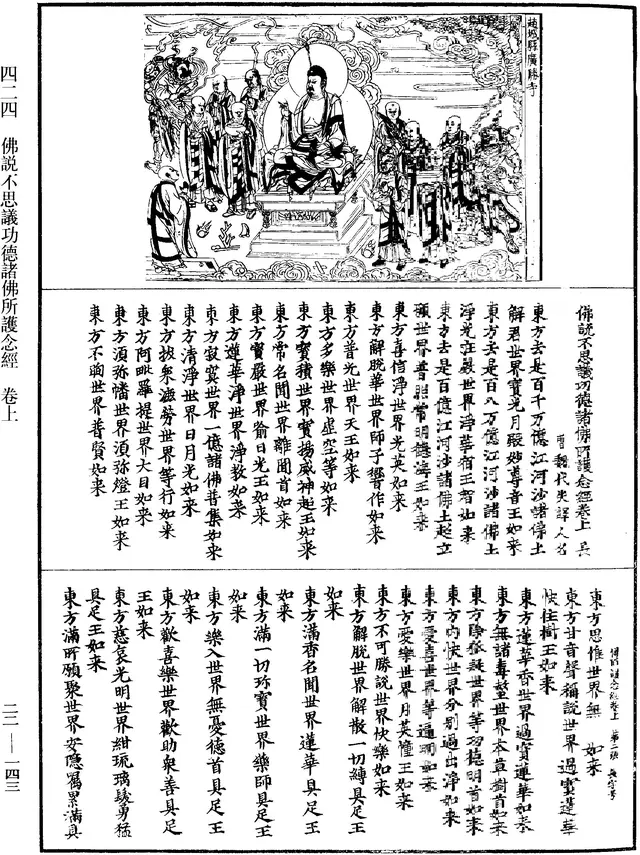 四二四　佛説不思議功德諸佛所護念經　卷上
趙城縣廣勝寺
佛説不思議功德諸佛所護念經卷上　長
曹魏代失譯人名
東方去是百千万億江河沙諸佛土
解君世界寶光月殿妙尊音王如來
東方去是百八万億江河沙諸佛土
淨光莊嚴世界淨華宿王智如來
東方去是百億江河沙諸佛土超立
願世界普照常明德海王如來
東方喜信淨世界光英如來
東方解脱華世界師子響作如來
東方普光世界天王如來
東方多樂世界虛空等如來
東方寶積世界寶揚威神超王如來
東方常名聞世界離聞首如來
東方寶嚴世界踰日光王如來
東方蓮華淨世界淨教如來
東方寂寞世界一億諸佛普集如來
東方清淨世界日月光如來
東方拔衆滋勞世界等行如來
東方阿毗羅提世界大目如來
東方須弥幡世界須弥燈王如來
東方不眴世界普賢如來
東方思惟世界無　如來
東方甘音聲稱説世界過寶蓮華
快住樹王如來
東方蓮華香世界過寶蓮華如來
東方無諸毒螫世界本草樹首如來
東方　世界等功德明首如來
東方内快世界分別過出淨如來
東方愛喜世界等遍明如來
東方愛樂世界月英幢王如來
東方不可勝説世界快樂如來
東方解脱世界解散一切縛具足王
如來
東方滿香名聞世界蓮華具足王
如來
東方滿一切珎寶世界藥師具足王
如來
東方樂入世界無憂德首具足王
如來
東方歡喜樂世界歡助衆善具足
王如來
東方慈哀光明世界紺琉璃髮勇猛
具足王如來
東方滿所願聚世界安隱囑累滿具
二二—一四三